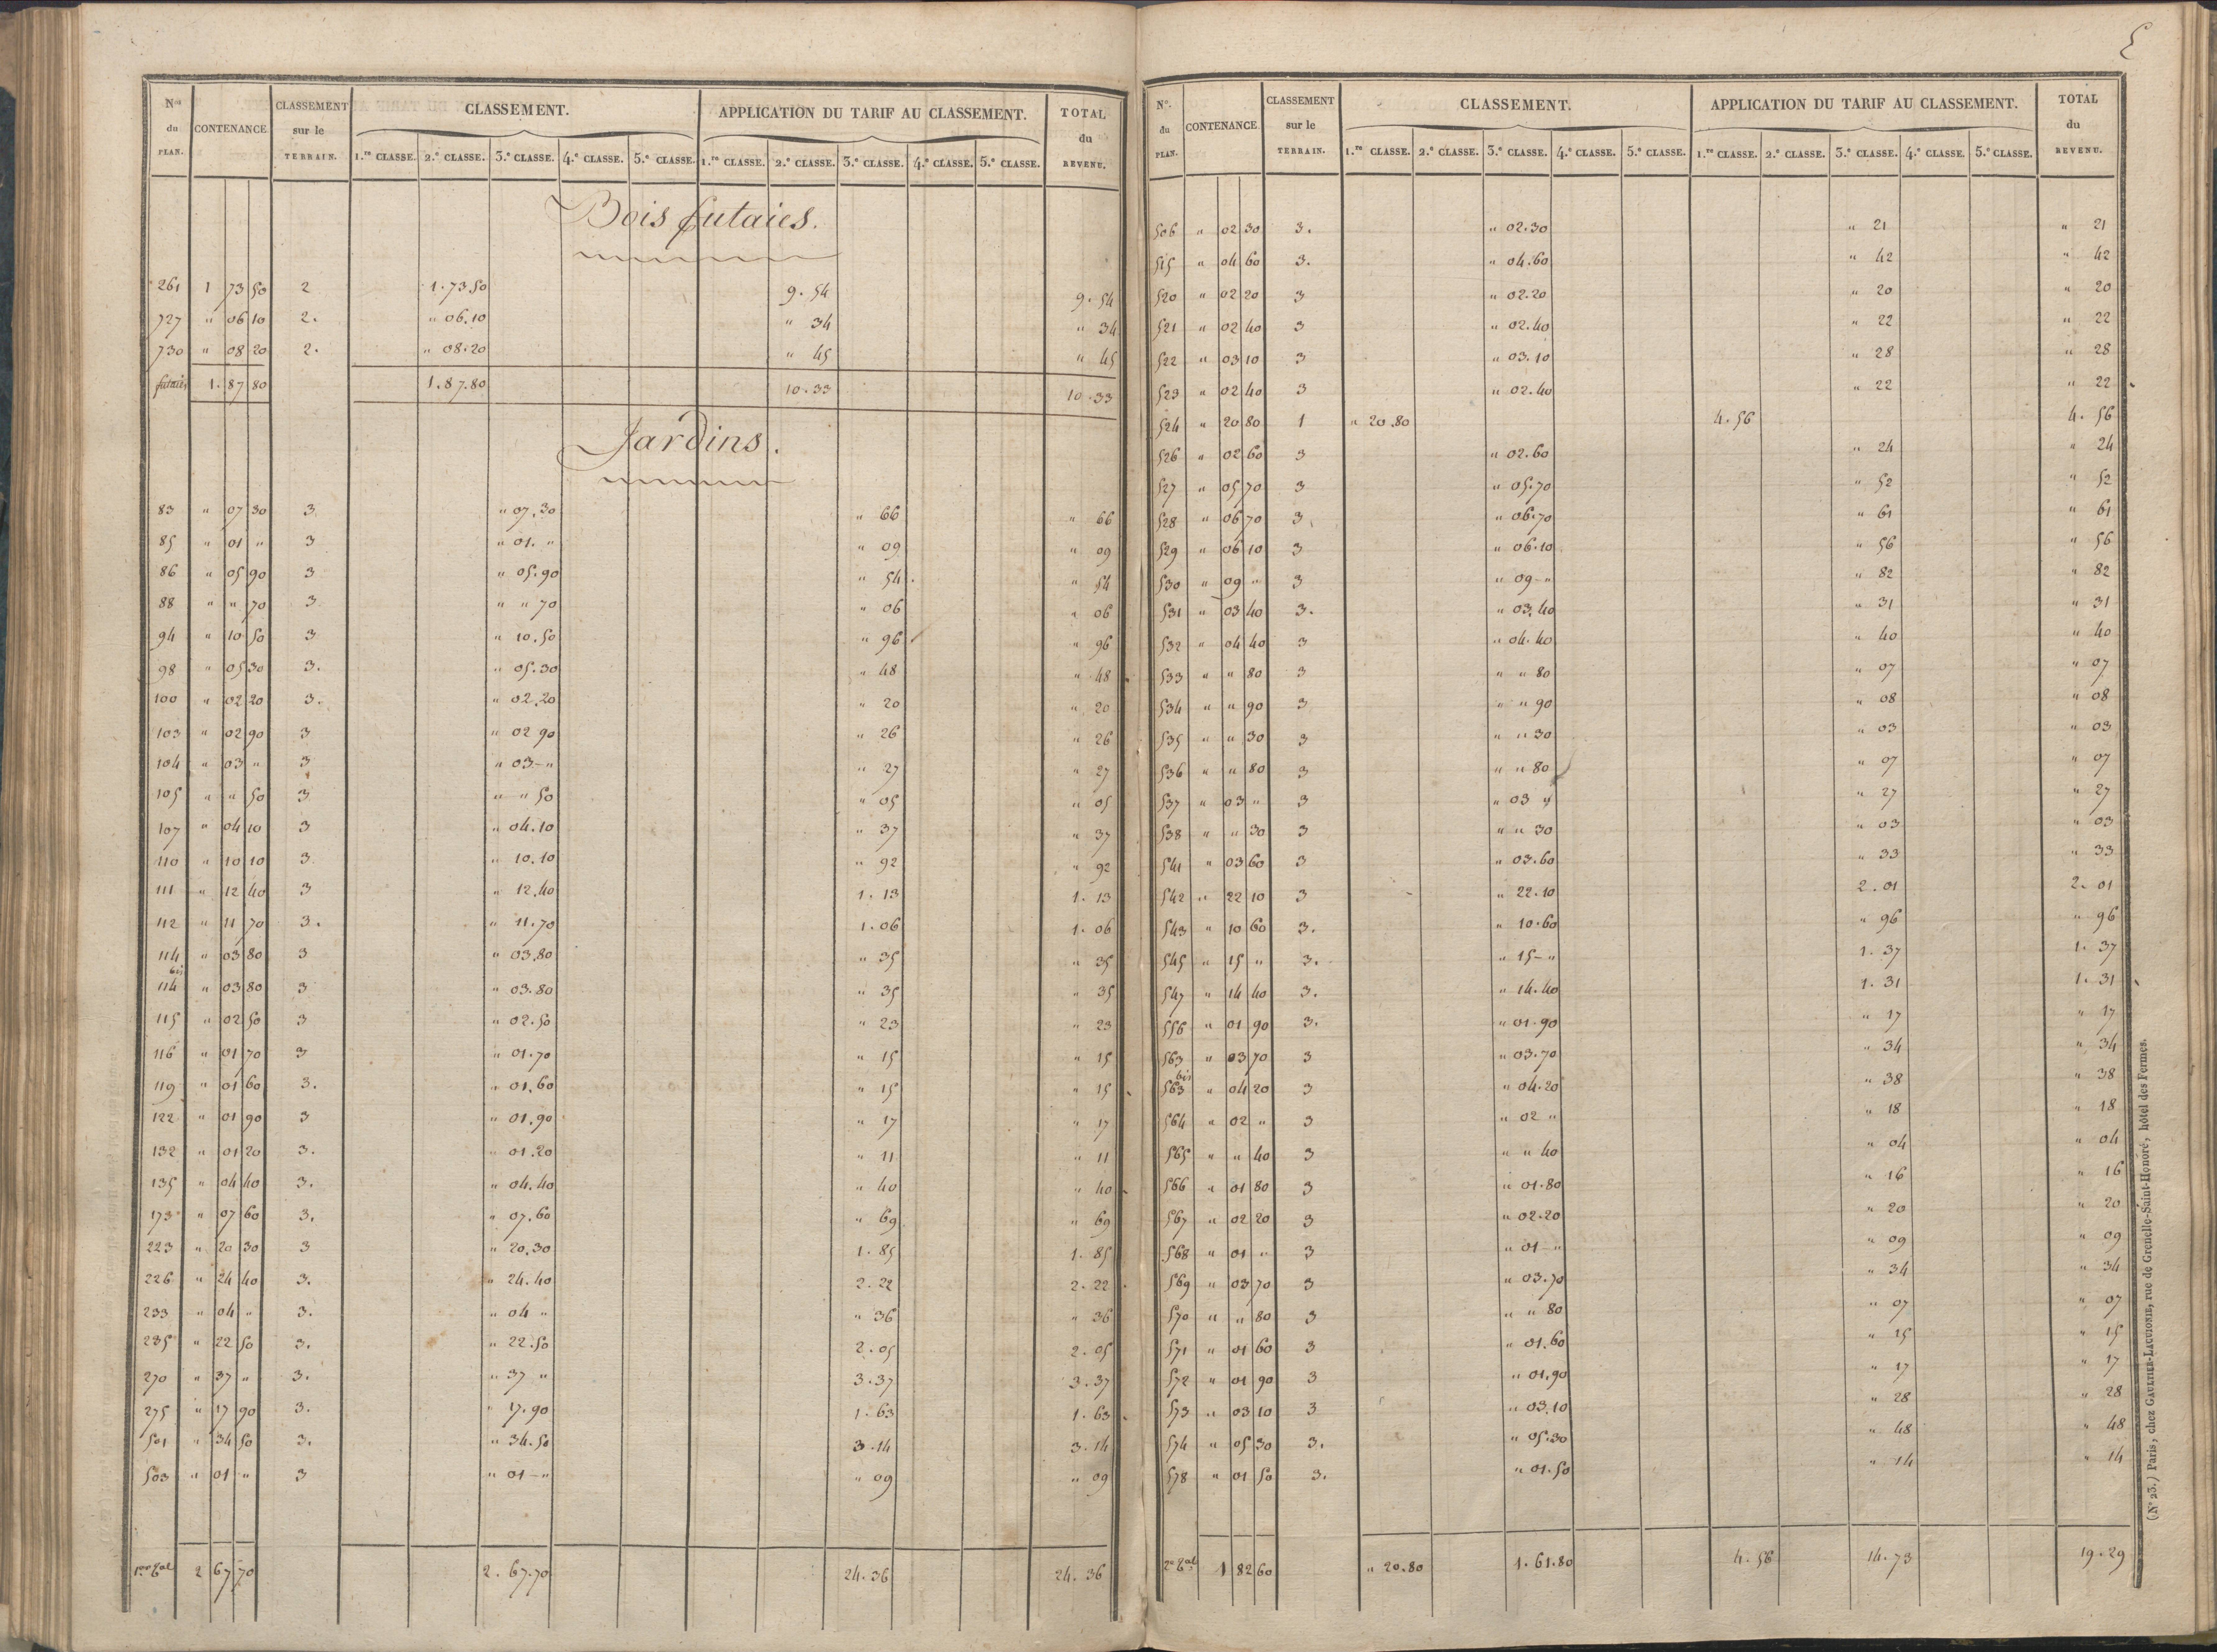 Nos du PLAN. CONTENANCE. CLASSEMENT sur le TERRAIN. CLASSEMENT. APPLICATION DU TARIF AU CLASSEMENT. TOTAL du REVENU.
1.re CLASSE. 2.e CLASSE. 3.e CLASSE. 4.e CLASSE. 5.e CLASSE. 1.re CLASSE. 2.e CLASSE. 3.e CLASSE. 4.e CLASSE. 5.e CLASSE.
Bois futaies.
261 1 73 50 2 1.73 50 9.54 9.54
727 " 06 10 2. " 06.10 " 34 " 34
730 " 08 20 2. " 08.20 " 45 " 45
futaies 1. 87 80 1.87.80 10.33 10.33
Jardins.
83 " 07 30 3. " 07.30 " 66 " 66
85 " 01 " 3 " 01. " " 09 " 09
86 " 05 90 3 " 05.90 " 54. " 54
88 " " 70 3 " " 70 " 06 " 06
94 " 10 50 3 " 10.50 " 96 " 96
98 " 05 30 3. " 05.30 " 48 " 48
100 " 02 20 3. " 02.20 " 20 " 20
103 " 02 90 3 " 02 90 " 26 " 26
104 " 03 " 3 " 03-" " 27 " 27
105 " " 50 3 " " 50 " 05 " 05
107 " 04 10 3 " 04.10 " 37 " 37
110 " 10 10 3 " 10.10 " 92 " 92
111 " 12 40 3 " 12.40 1.13 1.13
112 " 11 70 3. " 11.70 1.06 1.06
114 " 03 80 3 " 03.80 " 35 " 35
114 bis " 03 80 3 " 03.80 " 35 " 35
115 " 02 50 3 " 02.50 " 23 " 23
116 " 01 70 3 " 01.70 " 15 " 15
119 " 01 60 3. " 01.60 " 15 " 15
122 " 01 90 3 " 01.90 " 17 " 17
132 " 01 20 3. " 01.20 " 11 " 11
135 " 04 40 3. " 04.40 " 40 " 40
173 " 07 60 3. " 07.60 " 69 " 69
223 " 20 30 3 " 20.30 1.85 1.85
226 " 24 40 3. " 24.40 2.22 2.22
233 " 04 " 3. " 04 " " 36 " 36
235 " 22 50 3. " 22.50 2.05 2.05
270 " 37 " 3. " 37 " 3.37 3.37
275 " 17 90 3. " 17.90 1.63 1.63
501 " 34 50 3. " 34.50 3.14 3.14
503 " 01 " 3 " 01-" " 09 " 09
2 67 70 2.67.70 24.36 24.36
N.o du PLAN. CONTENANCE. CLASSEMENT sur le TERRAIN. CLASSEMENT. APPLICATION DU TARIF AU CLASSEMENT. TOTAL du REVENU.
1.re CLASSE. 2.e CLASSE. 3.e CLASSE. 4.e CLASSE. 5.e CLASSE. 1.re CLASSE. 2.e CLASSE. 3.e CLASSE. 4.e CLASSE. 5.e CLASSE.
506 " 02 30 3. " 02.30 " 21 " 21
515 " 04 60 3. " 04.60 " 42 " 42
520 " 02 20 3 " 02.20 " 20 " 20
521 " 02 40 3 " 02.40 " 22 " 22
522 " 03 10 3 " 03.10 " 28 " 28
523 " 02 40 3 " 02.40 " 22 " 22
524 " 20 80 1 " 20.80 4.56 4.56
526 " 02 60 3 " 02.60 " 24 " 24
527 " 05 70 3 " 05.70 " 52 " 52
528 " 06 70 3 " 06.70 " 61 " 61
529 " 06 10 3 " 06.10 " 56 " 56
530 " 09 " 3 " 09-" " 82 " 82
531 " 03 40 3. " 03.40 " 31 " 31
532 " 04 40 3 " 04.40 " 40 " 40
533 " " 80 3 " " 80 " 07 " 07
534 " " 90 3 " " 90 " 08 " 08
535 " " 30 3 " " 30 " 03 " 03
536 " " 80 3 " " 80 " 07 " 07
537 " 03 " 3 " 03 " " 27 " 27
538 " " 30 3 " " 30 " 03 " 03
541 " 03 60 3 " 03.60 " 33 " 33
542 " 22 10 3 " 22.10 2.01 2.01
543 " 10 60 3. " 10.60 " 96 " 96
545 " 15 " 3. " 15-" 1.37 1.37
547 " 14 40 3. " 14.40 1.31 1.31
556 " 01 90 3. " 01.90 " 17 " 17
563 " 03 70 3 " 03.70 " 34 " 34
563 bis " 04 20 3 " 04.20 " 38 " 38
564 " 02 " 3 " 02 " " 18 " 18
565 " " 40 3 " " 40 " 04 " 04
566 " 01 80 3 " 01.80 " 16 " 16
567 " 02 20 3 " 02.20 " 20 " 20
568 " 01 " 3 " 01-" " 09 " 09
569 " 03 70 3 " 03.70 " 34 " 34
570 " " 80 3 " " 80 " 07 " 07
571 " 01 60 3 " 01.60 " 15 " 15
572 " 01 90 3 " 01.90 " 17 " 17
573 " 03 10 3 " 03.10 " 28 " 28
574 " 05 30 3. " 05.30 " 48 " 48
578 " 01 50 3. " 01.50 " 14 " 14
1 82 60 " 20.80 1.61.80 4.56 14.73 19.29
(N° 23.) Paris, chez GAULTIER-LAGUIONIE, rue de Grenelle-Saint-Honoré, hôtel des Fermes.